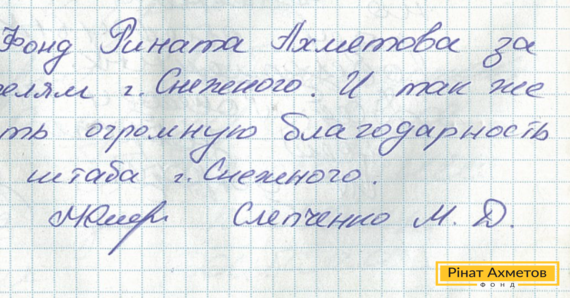 Фонд Рината Ахметова за
елям г. Снежного. И так же
ть огромную благодарность
штаба г. Снежного.
Слепченко М. Д.
Рінат Ахметов
ФОНД